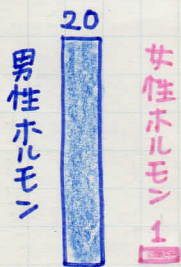 20
男性ホルモン
女性ホルモン
1